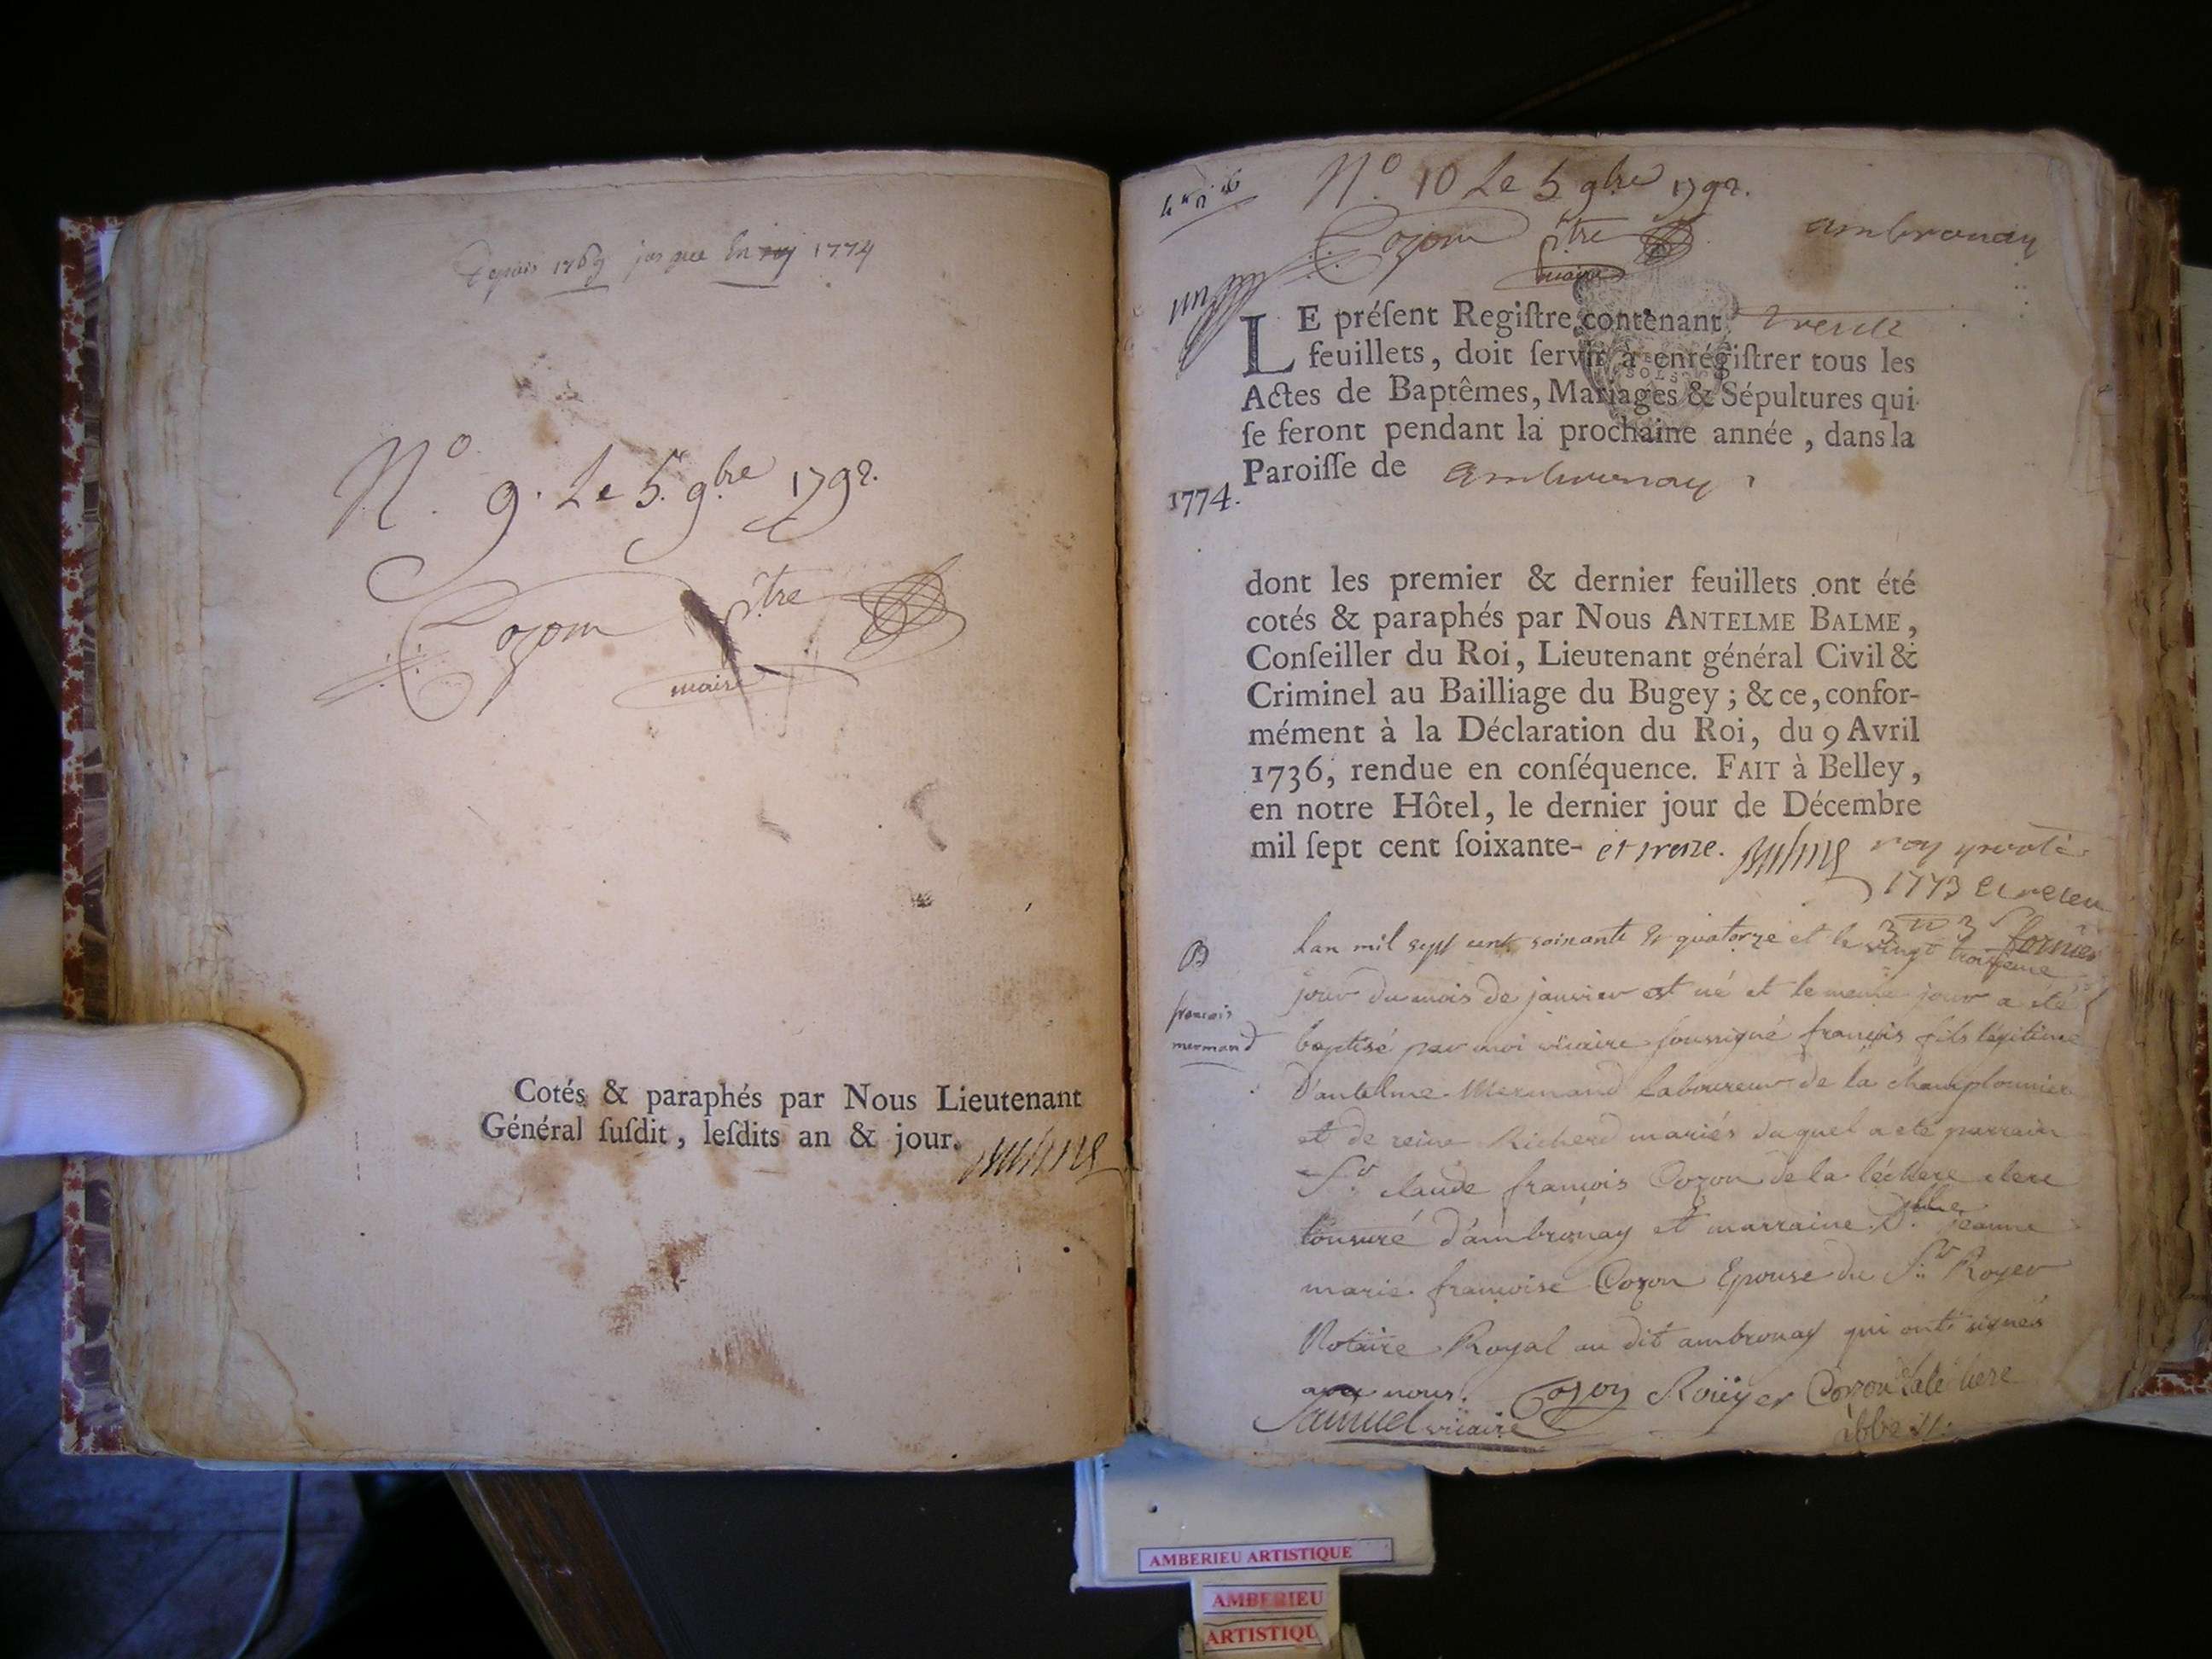 Depuis 1769 jusque en 1774
N.o 9. Le 5. 9bre 1792.
Cozon ptre
maire
Cotés & paraphés par Nous Lieutenant
Général ſuſdit, leſdits an & jour.
N.o 10 Le 5 9bre 1792.
Cozon ptre
maire
ambronay
LE préſent Regiſtre contenant trente
feuillets, doit ſervir à enrégiſtrer tous les
Actes de Baptêmes, Mariages & Sépultures qui
ſe feront pendant la prochaine année, dans la
Paroiſſe de ambournay
1774.
dont les premier & dernier feuillets ont été
cotés & paraphés par Nous ANTELME BALME,
Conſeiller du Roi, Lieutenant général Civil &
Criminel au Bailliage du Bugey; & ce, confor-
mément à la Déclaration du Roi, du 9 Avril
1736, rendue en conſéquence. FAIT à Belley,
en notre Hôtel, le dernier jour de Décembre
mil ſept cent ſoixante- et treize. Balme
1773
B
francois
mermand
Lan mil sept cent soixante & quatorze et le vingt troisieme
jour du mois de janvier est né et le meme jour a été
baptisé par moi vicaire soussigné françois fils légitime
d'antelme Mermand laboureur de la championnier
et de reine Richerd mariés duquel a ete parrain
Sr claude françois Cozon de la léchere clerc
tonsuré d'ambronay et marraine Dlle jeanne
marie françoise Cozon Epouse du Sr Royer
Notaire Royal au dit ambronay qui ont signés
avec nous. Cozon Roüyer Cozon dela léchere
Samuel vicaire abbé
AMBERIEU ARTISTIQUE
AMBERIEU
ARTISTIQU